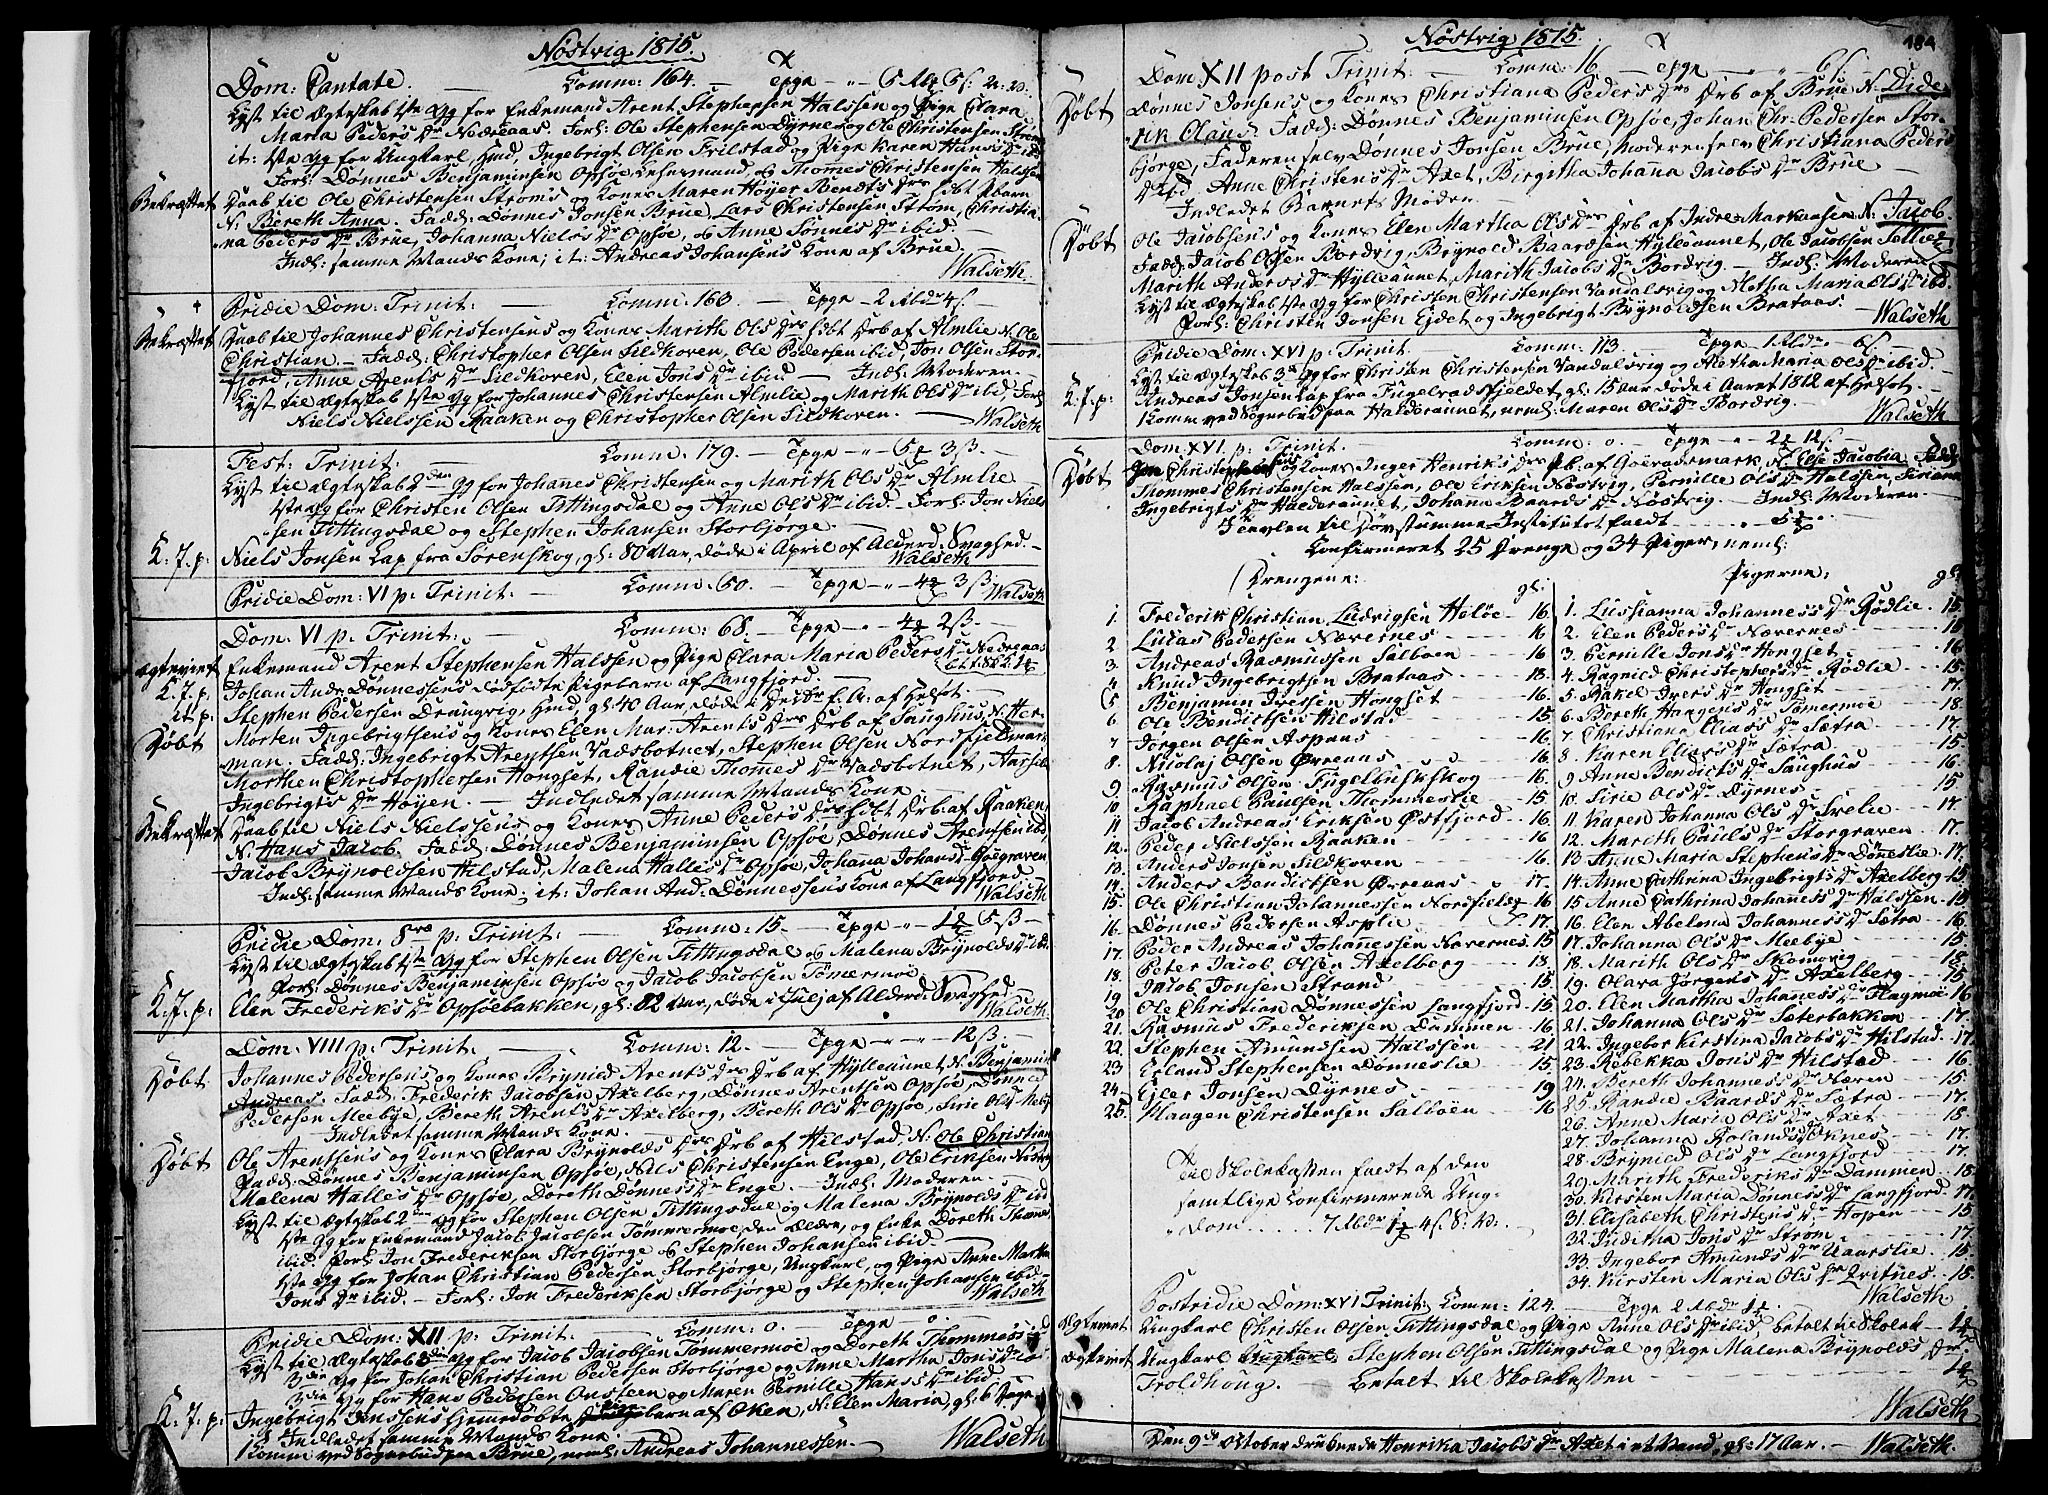 Nöstvig 1815.
Dom: Cantate. — Comm: 164. — Tpge
Lyst til Ægteskab 1ste Gg for Enkemand Arent Stephensen Halssen og Pige Clara
Maria Peders Dr Nedreaas. Forl: Ole Stephensen Dyrnes og Ole Christensen Strøm
it: 1ste Gg for Ungkarl, Hmd, Ingebrigt Olsen Frilstad og Pige Karen Hans Dr ibid
Forl: Dønnes Benjaminsen Opsøe Lehnsmand, & Thomes Christensen Halssen
Bekræftet Daab til Ole Christensen Strøms og Kones Maren Höyer Bendts Drs födt Pbarn
N: Bereth Anna. Fadd: Dönnes Jonsen Brue, Lars Christensen Ström, Christia-
na Peders Dr Brue, Johanna Niels Dr Opsöe, & Anne Tönnes Dr ibid —
Indl: samme Mands Kone; it: Andreas Johansens Kone af Brue —
Walseth
Pridie Dom: Trinit: — Comm: 163. — Tpge — 2 Rldr 4 ß.
Bekræftet Daab til Johannes Christensens og Kones Marith Ols Drs födt Drb af Almlie N: Ole
Christian — Fadd: Christopher Olsen Sildhoven, Ole Pedersen ibid, Jon Olsen Stor-
fjord, Anne Arents Dr Sildhoven, Elen Jons Dr ibid — Indl: Moderen —
Lyst til Ægteskab 1ste Gg for Johannes Christensen Almlie og Marith Ols Dr ibid, Forl:
Niels Nielssen Raaken og Christopher Olsen Sildhoven. — Walseth
Fest: Trinit: — Comm: 179. — Tpge
Lyst til Ægteskab 2den Gg for Johanes Christensen og Marith Ols Dr Almlie
1ste Gg for Christen Olsen Tittingsdal og Anne Ols Dr ibid — Forl: Jon Niels-
sen Tittingsdal og Stephen Johansen Storbjörge. —
K. J. p: Niels Jonsen Lap fra Sörenskog, gl: 80 Aar, döde i April af Alderd: Svaghed. —
Walseth
Pridie Dom: VI p: Trinit: — Comm: 60. — Tpge — Walseth
Dom: VI p: Trinit: — Comm: 68. — Tpge
Ægteviet Enkemand Arent Stephensen Halssen og Pige Clara Maria Peders Dr Nedreaas
K. J. p. Johan Andr: Dönnessens dödfödte Pigebarn af Langfjord. —
it: p: Stephen Pedersen Drangvig, Hmd, gl: 40 Aar, döde i
Döbt Morten Ingebrigtsens og Kones Elen Mar: Arents Drs Drb af Saughus, N: Her-
man. Fadd: Ingebrigt Arentsen Vadsbotnet, Stephen Olsen Nordfjeldmark
Morthen Christophersen Hongset, Randie Thomes Dr Vadsbotnet,
Ingebrigts Dr Höyen. — Indledet samme Mands Kone
Bekræftet Daab til Niels Nielssens og Kones Anne Peders Drs födt Drb: af Raaken
N: Hans Jacob. Fadd: Dönnes Benjaminsen Opsöe, Dönnes Arentsen ibid
Jacob Brynoldsen Hilstad, Malena Halles Dr Opsöe, Johanna Johans Dr
Indl: samme Mands Kone; it: Johan And: Dönnessens Kone af Langfjord
Walseth
Pridie Dom: 8va p: Trinit: — Comm: 15. — Tpge
Lyst til Ægteskab 1ste Gg for Stephen Olsen Tittingsdal & Malena Brynolds Dr ibid
Forl: Dönnes Benjaminsen Opsöe og Jacob Jacobsen Tömmermoe —
K. J. p: Elen Frederiks Dr Opsöebakken, gl: 82 Aar, döde i Julj af Alderd: Svaghed —
Walseth
Dom: VIII p: Trinit: — Comm: 12. — Tpge — 12 ß —
Döbt Johannes Pedersens og Kones Brynild Arents Drs Drb af Hylleaunet N: Benjamin
Andreas. Fadd: Frederik Jacobsen Axelberg, Dönnes Arentsen Opsöe, Dönnes
Pedersen Meebye, Bereth Arents Dr Axelberg, Bereth Ols Dr Opsöe, Sirie Ols
Indledet samme Mands Kone —
Döbt Ole Arentsens og Kones Clara Brynolds Drs Drb af Hilstad, N: Ole Christian
Fadd: Dönnes Benjaminsen Opsöe, Nils Christensen Enge, Ole Eriksen Nöstvig
Malena Halles Dr Opsöe, Doreth Dönnes Dr Enge. — Indl: Moderen. —
Lyst til Ægteskab 2den Gg for Stephen Olsen Tittingsdal og Malena Brynolds Dr ibid
1ste Gg for Enkemand Jacob Jacobsen Tömmermoe, den Ældre, og Enke Doreth Thomes
ibid. Forl: Jon Frederiksen Storbjörge & Stephen Johansen ibid.
1ste Gg for Johan Christian Pedersen Storbjörge, Ungkarl, og Pige Anne Martha
Jons Dr ibid. — Forl: Jon Frederiksen Storbjörge og Stephen Johansen ibid —
Walseth
Pridie Dom: XII p: Trinit: — Comm: 0. — Tpge 0. —
Lyst til Ægteskab 3die Gg for Jacob Jacobsen Tömmermoe og Doreth Thommes Dr ibid
3die Gg for Johan Christian Pedersen Storbjörge og Anne Martha Jons Dr
3die Gg for Hans Pedersen og Maren Pernille Hans Dr ibid
K. J. p: Ingebrigt Jenssens hjemmedöbte Pigebarn af Oken, N: Elen Maria, gl: 6 Dage
Indledet samme Mands Kone.
1 Komm: ved Sognebud paa Brue, neml: Andreas Johannessen. — Walseth
Nöstvig 1815. 184
Dom: XII post Trinit: — Comm: 16 — Tpge — 6 ß. —
Döbt Dönnes Jonsens og Kones Christiana Peders Drs Drb af Brue N: Dide-
rik Olaus. Fadd: Dönnes Benjaminsen Opsöe, Johan Chr: Pedersen Stor-
björge, Faderen selv Dönnes Jonsen Brue, Moderen selv Christiana Peders
Dr ibid, Anne Christens Dr Axet, Birgitha Johana Jacobs Dr Brue
Indledet Barnets Moder. —
Döbt Ole Jacobsens og Kones Elen Martha Ols Drs Drb af Indre Markaasen N: Jacob.
Fadd: Jacob Olsen Bordvig, Brynold Baardsen Hylleaunet, Ole Jacobsen
Marith Anders Dr Hylleaunet, Marith Jacobs Dr Bordvig — Indl: Moderen —
Lyst til Ægteskab 1ste Gg for Christen Christensen Vandalsvig og Aletha Maria Ols Dr ibid.
Forl: Christen Jonsen Ejdet og Ingebrigt Brynoldsen Brataas. —
Walseth
Pridie Dom: XVI p: Trinit. Comm: 113 Tpge
Lyst til Ægteskab 3die Gg for Christen Christensen Vandalsvig og Aletha Maria Ols Dr ibid.
K. J. p: Andreas Jonsen Lap fra Fugelradsfjeldet, gl: 15 Aar döde i Aaret 1812 af Helsot. —
1 Komm: ved Sognebud paa Halderaunet, neml: Maren Ols Dr Bordvig. — Walseth
Dom: XVI p: Trinit. — Comm: 0. — Tpge
Döbt og Kones Inger Henriks Drs Pb. af N: Else Jacobia. Fadd:
Thommes Christensen Halssen, Ole Eriksen Nöstvig, Pernille Ols Dr Halssen,
Ingebrigts Dr Halderaunet, Johana Baards Dr Nöstvig. — Indl: Moderen. —
I Tavlen til Dövstumme Institutet faldt
Confirmeret 25 Drenge og 34 Piger, neml:
Drengene: gl:
1. Frederik Christian Ludvigsen Helöe — 16.
2 Lucas Pedersen Nævernes — 16
3. Andreas Rasmussen Salboen — 16
4 Knud Ingebrigtsen Brataas — 18.
5 Benjamin Iversen Hongset — 16.
6 Ole Bendictsen Hilstad — 15.
7 Jörgen Olsen Aspaas — 16
8 Nicolaj Olsen Övreaas — 16.
9 Rasmus Olsen Fugelbuskskog — 16.
10 Raphael Paulsen Thommeslie — 15
11 Jacob Andreas Eriksen Östfjord — 16.
12. Peder Nielssen Raaken — 16
13. Anders Jonsen Sildhoven — 16.
14. Anders Bendictsen Övreaas — 17.
15. Ole Christian Johannessen Nordfjeldm: — 16
16. Dönnes Pedersen Asplie — 17.
17. Peder Andreas Johanessen Nævernes. 15
18. Peter Jacob Olsen Axelberg — 18.
19 Jacob Jonsen Strand — 15
20 Ole Christian Dönnessen Langfjord — 15.
21. Rasmus Frederiksen Dammen — 16
22. Stephen Amundssen Halssen — 21
23 Erland Stephensen Dönneslie — 15.
24. Ejler Jonsen Dyrnes — 19
25. Haagen Christensen Salboen — 16
Til Skolekassen faldt af den
samtlige confirmerede Ung-
dom
Pigerne: gl:
1. Lussianna Johanness Dr Rödlie — 15.
2. Elen Peders Dr Nævernes — 18
3 Pernille Jons Dr Hongset — 16
4. Ragnild Christophers Dr Rödlie — 15.
5. Rakel Ivers Dr Hongset — 17.
6. Bereth Haagens Dr Tömermoe — 18
7 Christiana Eliass Dr Sætra — 17.
8. Karen Eliass Dr Sætra — 15.
9 Anne Bendicts Dr Saughus — 16.
10. Sirie Ols Dr Dyrnes — 15
11. Karen Johanna Ols Dr Trelie — 17.
12. Marith Pauls Dr Storgraven — 17.
13 Anne Maria Stephens Dr Döneslie. 17.
14. Anne Cathrina Ingebrigts Dr Axelberg 15
15 Anne Cathrina Johanes Dr Halssen. 15
16. Elen Abelena Johaness Dr Sætra — 16
17. Johanna Ols Dr Meebye — 15.
18. Marith Ols Dr Skomovig — 18
19. Olara Jörgens Dr Axelberg — 15
20. Elen Martha Johaness Dr Flagmoe 16
21. Johanna Ols Dr Sæterbakken — 17.
22. Ingebor Kirstina Jacobs Dr Hilstad. 17.
23. Rebekka Jons Dr Hilstad — 16
24. Bereth Johaness Dr Næren — 15.
25. Randie Baards Dr Sætra — 17.
26. Anne Maria Ols Dr Axet — 18
27. Johanna Rolands Dr Oknes — 17.
28. Brynild Ols Dr Langfjord — 17.
29. Marith Frederiks Dr Dammen — 18
30. Kirsten Maria Dönness Dr Langfjord. 17
31. Elisabeth Christens Dr Hopen — 15
32. Juditha Jons Dr Strom — 17
33. Ingebor Amunds Dr Uaarslie — 15.
34. Kirsten Maria Ols Dr Qvitnes — 15.
Walseth
Postridie Dom: XVI Trinit: Comm: 124. — Tpge
Ægteviet Ungkarl Christen Olsen Tittingsdal og Pige Anne Ols Dr ibid, betalt til Skolek —
Ægteviet Ungkarl Stephen Olsen Tittingsdal og Pige Malena Brynolds Dr
Troldhoug. — Betalt til Skolekassen —
Walseth
Den 9de October druknede Henrika Jacobs Dr Axet i et Vand, gl: 17 Aar. — Walseth.